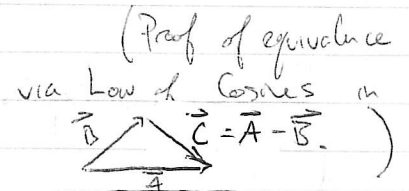 (Proof of equivalence
via Law of Cosines in
$\vec{B}$ $\vec{C} = \vec{A} - \vec{B}$. )
$\vec{A}$